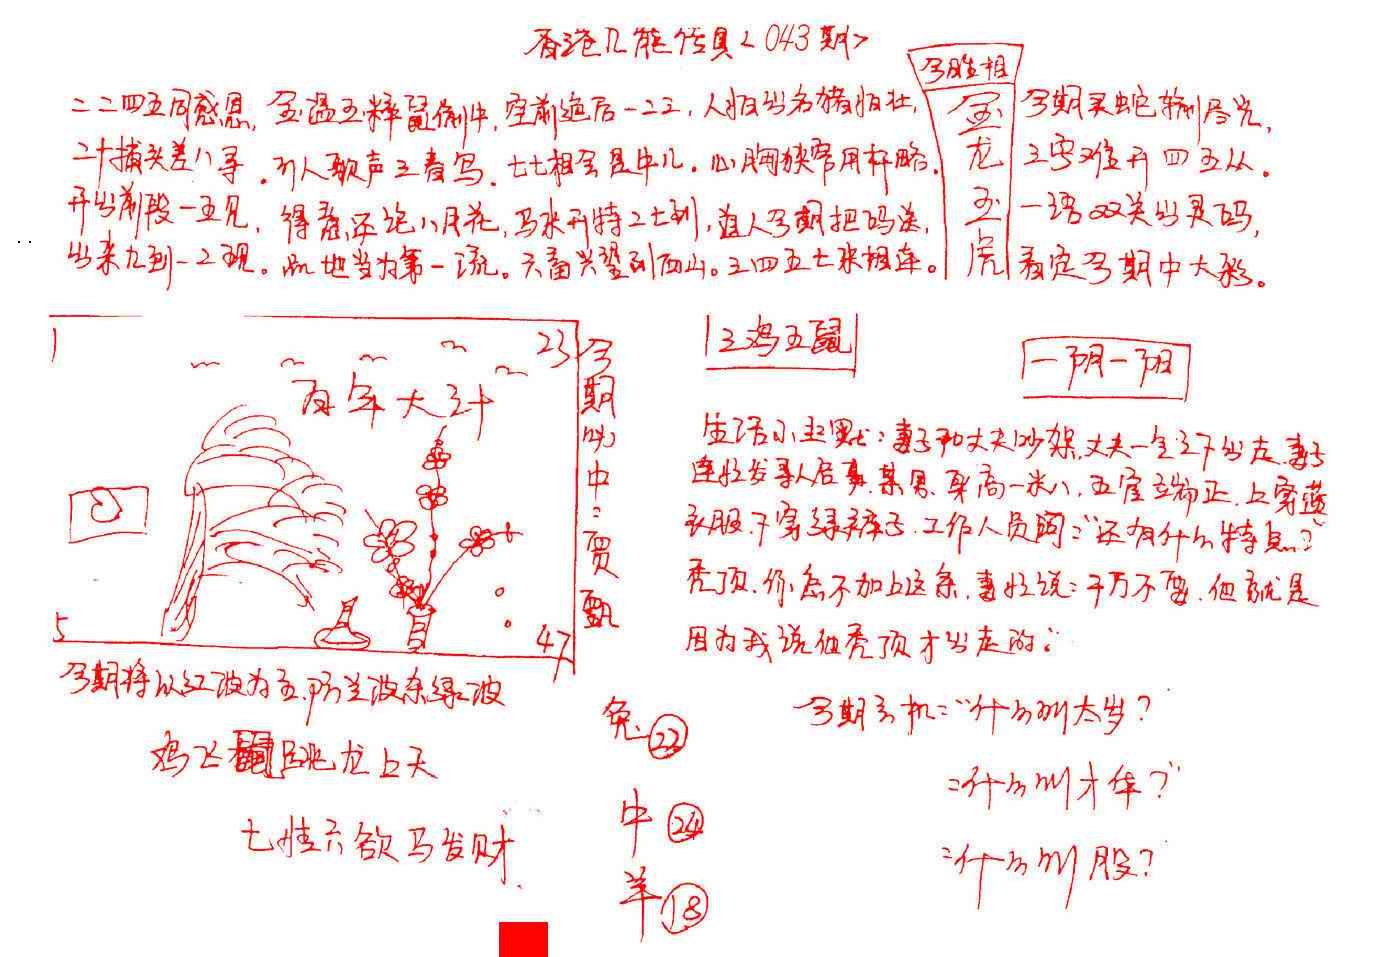 香港 传真<043期>
二二四五同感恩，金温五粹鼠 牛，空前绝后一二三，人怕出名猪怕壮，
二十捕头差八寻。引人歌声三春写。七七相会是牛儿。心胸狭窄用杆略。
开出前段一五见，得意不 八月花，马来开特二七到，道人今期把码送，
出来九到一二现。 地当为第一流。六畜兴望到西山。三四五七来相连。
今胜相
金龙玉虎
今期灵蛇 ，
三字难开四五从。
一语双关出灵码，
看定今期中大彩。
1 23
百年大计
5 47
今期必中：贾甄
三鸡五鼠
一阴一阳
生活小 ：妻子和丈夫吵架，丈夫一气之下出走，妻子
连忙发寻人启事，某男，身高一米八，五官端正，上穿蓝
衣服，下穿绿裤子，工作人员问：“还有什么特点？”
秃顶，你怎不加上这条，妻忙说：千万不要，他就是
因为我说他秃顶才出走的。
今期将以红波为主，防兰波杀绿波
鸡飞 跳龙上天
七情六欲马发财
兔 22
牛 24
羊 18
今期玄机：“什么叫太岁？
：什么叫才华？”
：什么叫股？